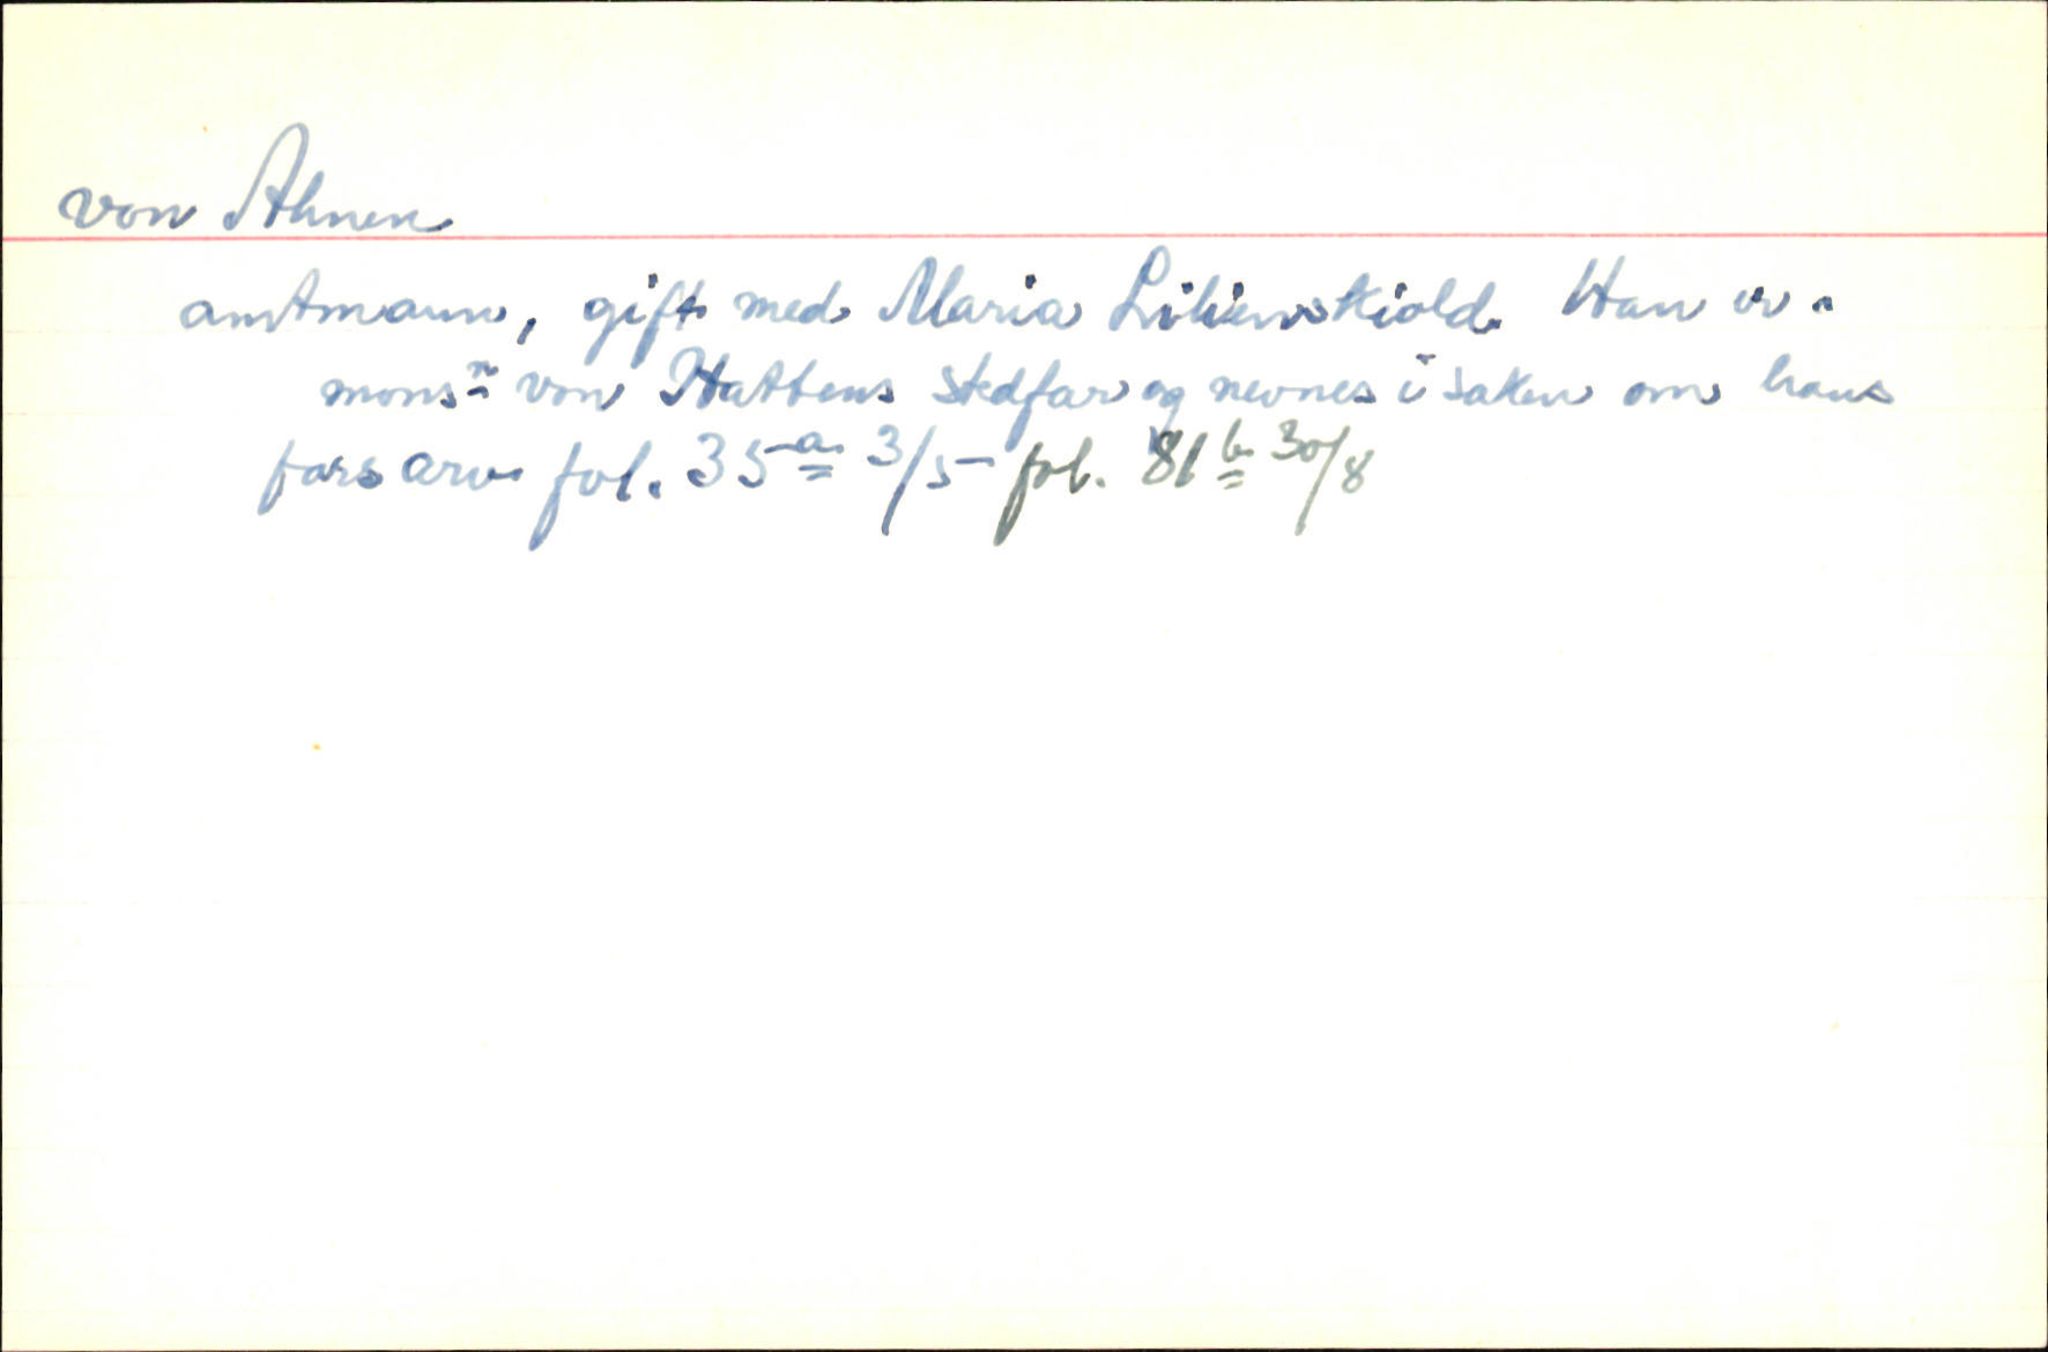 von Ahnen
amtmann, gift med Maria Lilienskiold. Han er.
monsr von Hattens stedfar og nevnes i saken om hans
fars arv. fol. 35a 3/5 - fol. 81b 30/8